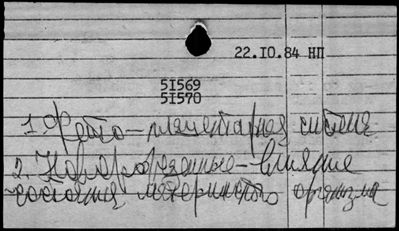 22.10.84 НП
51569
51570
1. Фето-плацентарная система
2. Новорожденные - влияние
состояния материнского организма